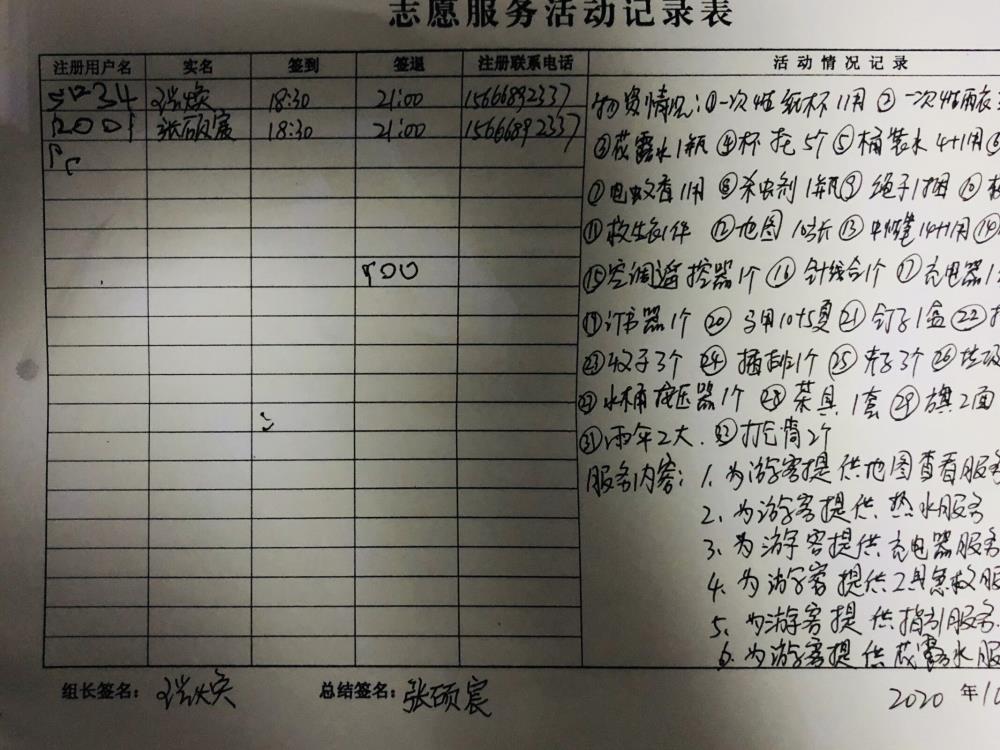 志愿服务活动记录表
注册用户名 实名 签到 签退 注册联系电话 活动情况记录
5234 18:30 21:00 15666892337
1200 张硕宸 18:30 21:00 15666892337
物资情况:①一次性纸杯11用 ② 一次性雨衣
③花露水1瓶 ④杯托5个 ⑤桶装水4+1用
⑦电蚊香1用 ⑧杀虫剂1瓶 ⑨绳子1捆 ⑩
⑪救生衣1件 ⑫地图10张 ⑬中性笔14+1用 ⑭
700
⑮空调遥控器1个 ⑯针线合1个 ⑰充电器1
⑲订书器1个 ⑳ ㉑钉子1盒 ㉒
3个 ㉔插排1个 ㉕夹子3个 ㉖垃圾
水桶按压器1个 ㉘茶具1套 ㉙旗2面
㉛雨伞2大. 打气筒2个
服务内容: 1、为游客提供地图查看服务
2、为游客提供热水服务
3、为游客提供充电器服务
4、为游客提供工具急救服
5、为游客提供指引服务
6、为游客提供花露水服
组长签名: 总结签名:张硕宸
2020 年10